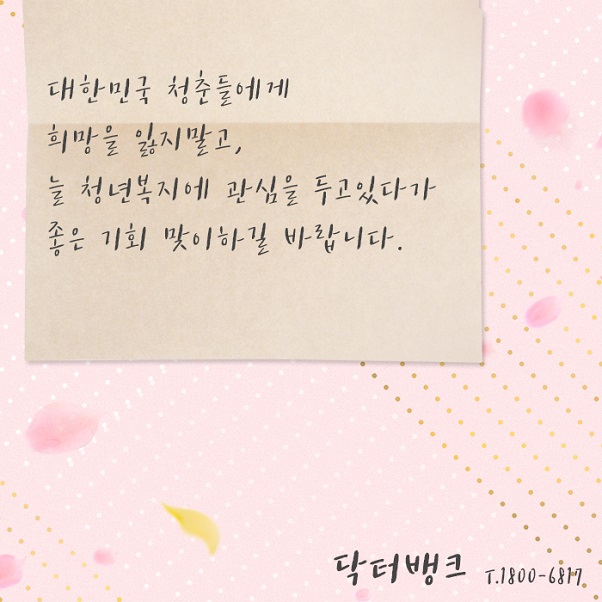 대한민국 청춘들에게
희망을 잃지말고,
늘 청년복지에 관심을 두고있다가
좋은 기회 맞이하길 바랍니다.
닥터뱅크 T.1800-6817